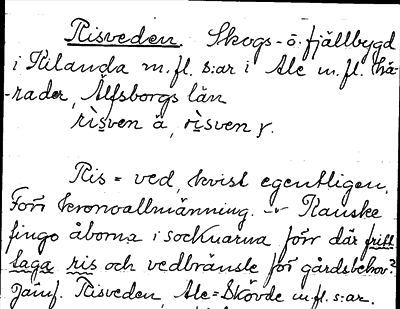 Risveden. Skogs- o. fjällbygd
i Kilanda m.fl. s:ar i Ale m.fl. hä-
-rader, Älfsborgs län
rìsven ä, rìsven y.
Ris = ved, kvist egentligen.
Förr kronoallmänning. Kanske
fingo åborna i socknarna förr där fritt
taga ris och vedbränsle för gårdsbehov?
Jämf. Risveden, Ale-Skövde m.fl. s:ar.